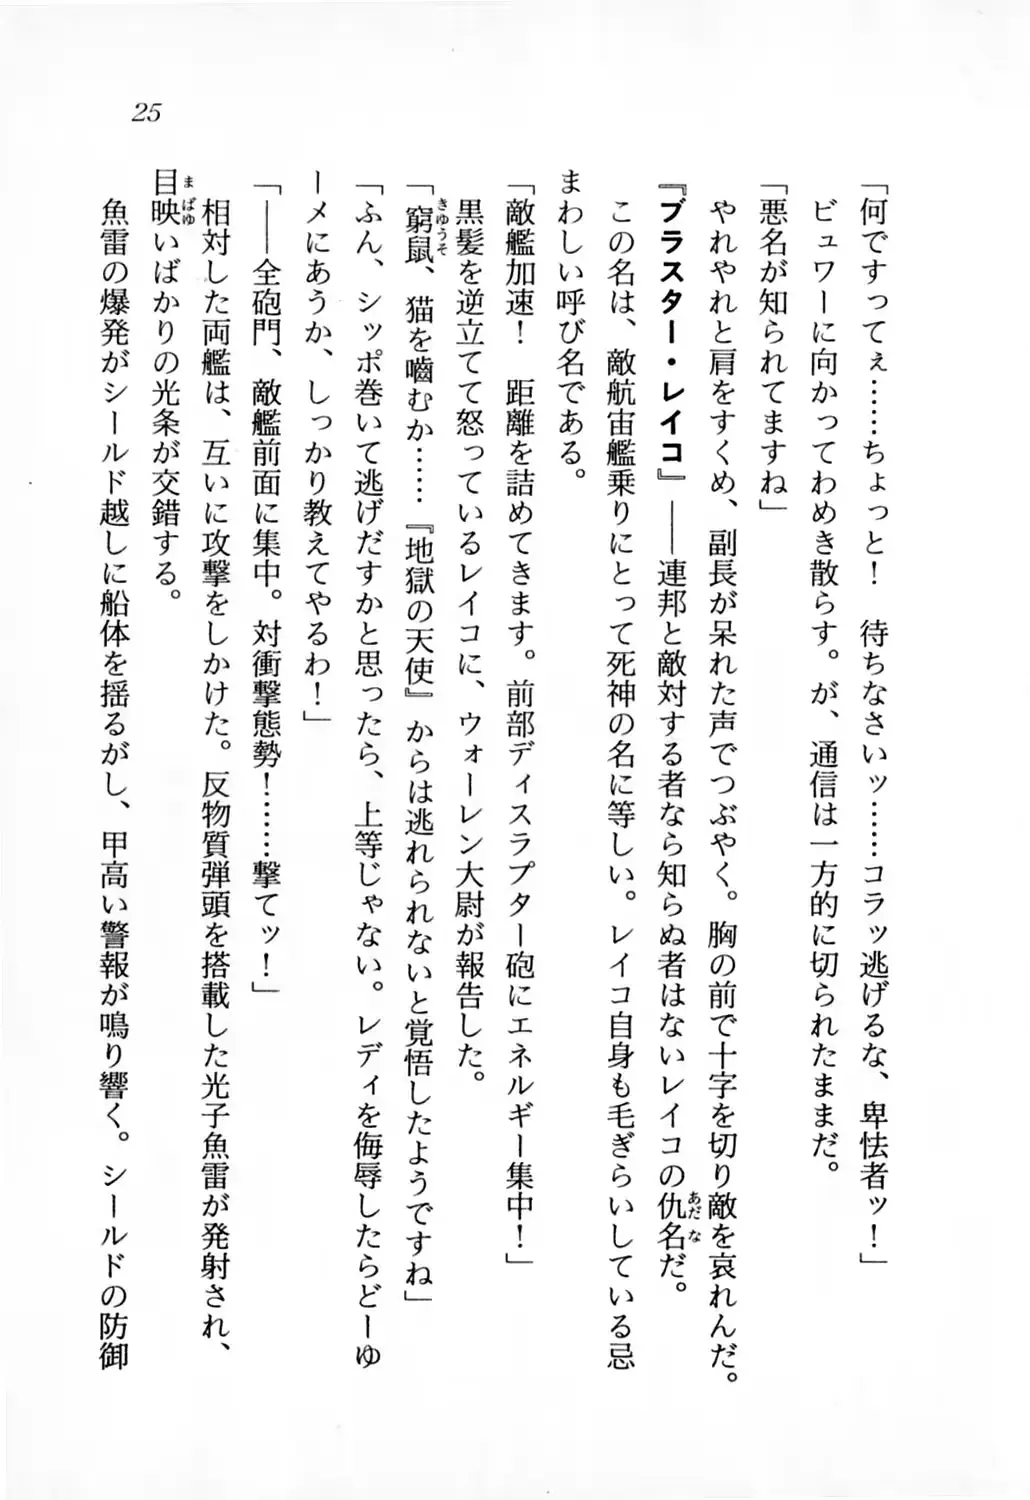 25
「何ですってぇ……ちょっと！　待ちなさいッ……コラッ逃げるな、卑怯者ッ！」
ビュワーに向かってわめき散らす。が、通信は一方的に切られたままだ。
「悪名が知られてますね」
やれやれと肩をすくめ、副長が呆れた声でつぶやく。胸の前で十字を切り敵を哀れんだ。
『ブラスター・レイコ』――連邦と敵対する者なら知らぬ者はないレイコの仇名だ。
あだな
この名は、敵航宙艦乗りにとって死神の名に等しい。レイコ自身も毛ぎらいしている忌
まわしい呼び名である。
「敵艦加速！　距離を詰めてきます。前部ディスラプター砲にエネルギー集中！」
黒髪を逆立てて怒っているレイコに、ウォーレン大尉が報告した。
「窮鼠、猫を嚙むか……『地獄の天使』からは逃れられないと覚悟したようですね」
きゆうそ
「ふん、シッポ巻いて逃げだすかと思ったら、上等じゃない。レディを侮辱したらどーゆ
ーメにあうか、しっかり教えてやるわ！」
「――全砲門、敵艦前面に集中。対衝撃態勢！……撃てッ！」
相対した両艦は、互いに攻撃をしかけた。反物質弾頭を搭載した光子魚雷が発射され、
目映いばかりの光条が交錯する。
まばゆ
魚雷の爆発がシールド越しに船体を揺るがし、甲高い警報が鳴り響く。シールドの防御